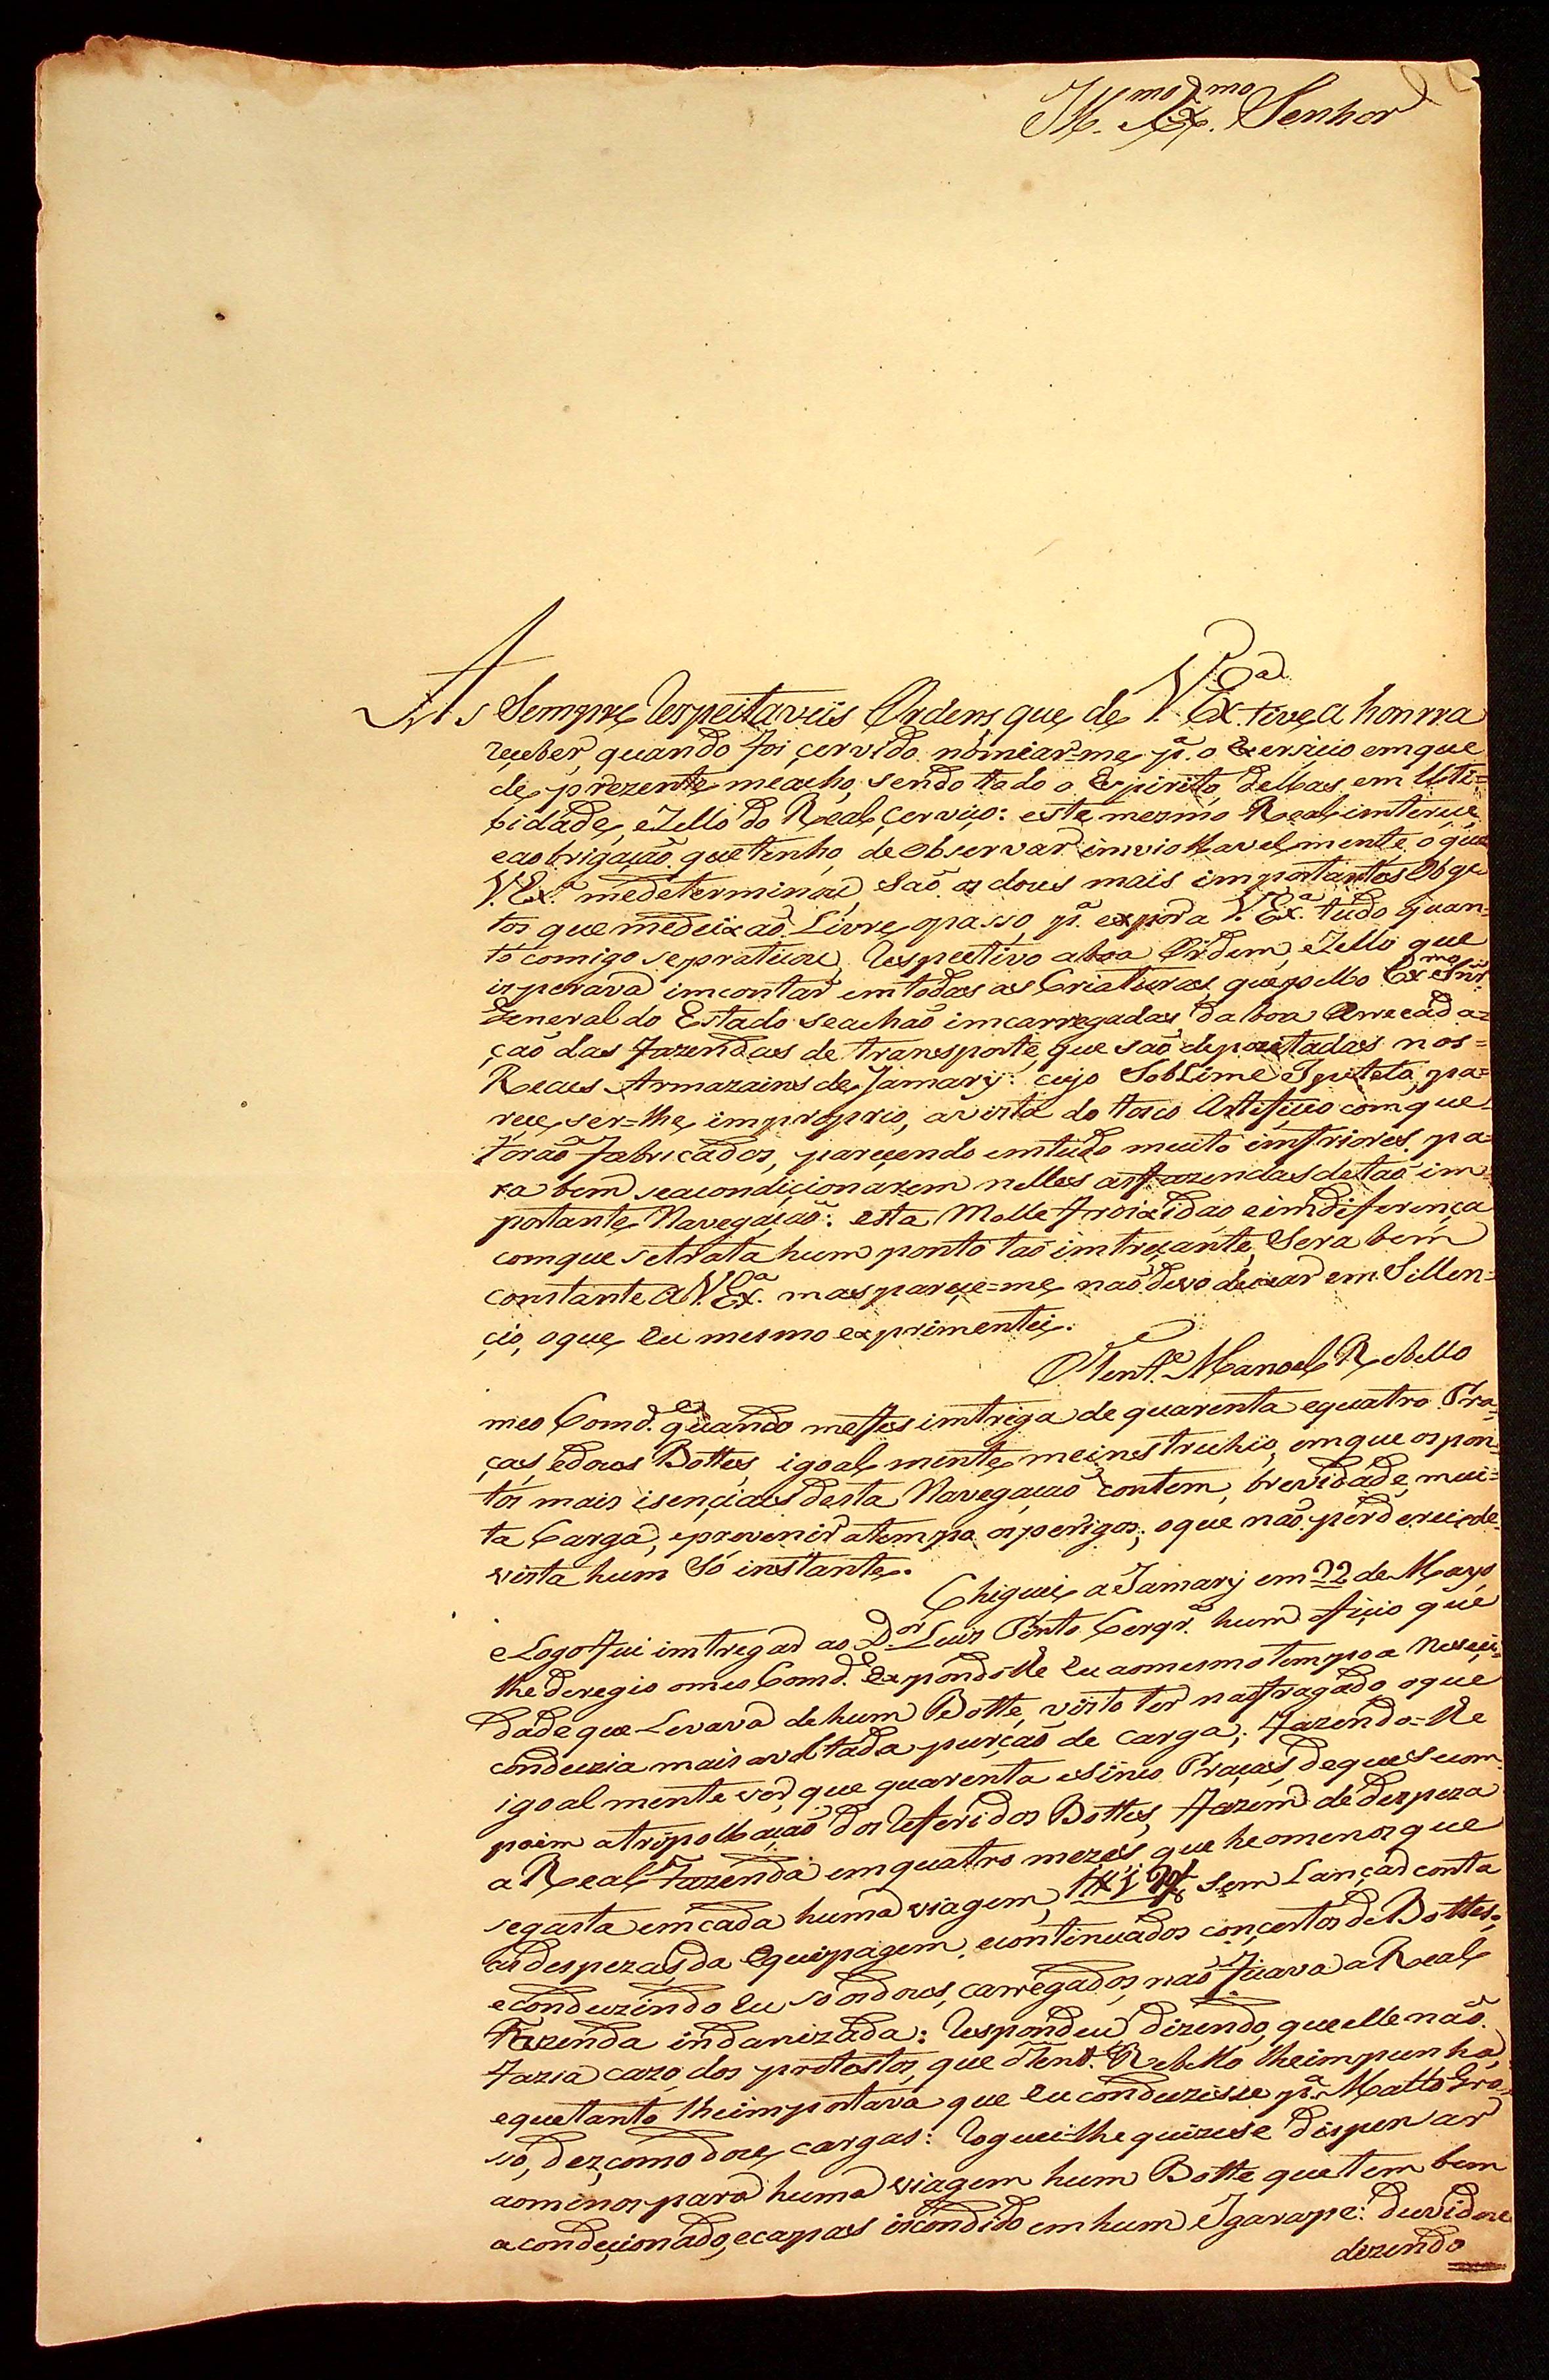 Ill.mo Ex.mo Senhor
As Sempre Respeitaveis Ordens que de V. Ex.a tive a honrra
reçeber, quando foi çervido nomiar=me p.a o Exersiçio emque
de prezente meacho, sendo todo o Espirito dellas, em Uti=
lidade, eZello do Real çerviço: este mesmo Real interçe
eaobrigação quetenho, de observar inviollavelmente, oque
V. Ex.a medeterminou, Saõ os dous mais importantes Obge
tos quemedeixaõ Livre, opasso p.a expor a V. Ex.a tudo quan=
to comigo sepraticou, Respectivo aboa Ordem, eZello que
isperava imcontar emtodas as Criaturas, quepello Ex.mo Snr.
General do Estado seachaõ imcarregadas, daboa Arrecada=
çaõ das fazendas de transporte, que saõ depozetadas nos=
Reaes Armazains de Jamary: cujo Soblime Ipiteto, pa=
reçe, ser=lhe, improprio, avista do tosco Artifiçio comque
foraõ fabricados, pareçendo emtudo muito imfriores, pa=
ra bem seacondiçionarem nelles asfazendas detaõ im=
portante, Navegaçaõ: esta Molle froixidaõ eindiferença
comque setrata hum ponto taõ imtreçante, Sera bem
constante a V. Ex.a mas pareçe=me, naõ devo deixar em Sillen=
çio, oque, Eu mesmo exprimentei.
O Tent.e Manoel Rebello
meo Comd.e quando mefes imtriga de quarenta equatro Pra=
ças, edous Bottes, igoalmente, meinstruhio, emque ospon=
tos mais isençiaes desta Navegaçaõ contem, brevidade, mui=
ta Carga, eprevenir atempo osperigos; oque naõ perderei de
vista hum Só instante.
Chiguei a Jamary em 22 de Mayo
eLogo fui imtregar ao D.or Luis Pinto Cerqr.a hum ofiçio que
lhederegio omeo Comd.e Expondolhe Eu aomesmotempo a Nesesçi=
dade que Levava de hum Botte, visto ter naofragado, oque
conduzia mais avoltada purçaõ de carga; fazendo=lhe
igoalmente ver, que quarenta esinco Praças, deque secom=
poem atripollaçaõ dos Referidos Bottes, fazem de despeza
a Real Fazenda emquatro mezes, que heomenosque
segasta emcada huma viagem, sem Lançar conta
asdespezas, da Equipagem, econtinuados conçertos de Bottes;
econduzindo Eu so osdous, carregados, naõ ficava a Real
Fazenda indanizada: Respondeu dizendo, queelle naõ
fazia cazo, dos protestos, que oTent.e Rebello lheimpunha,
equetanto lheimportava que Eu conduzisse p.a Matto Gro=
sso, dez, como doze cargas: Roguei=lhe quizese dispensar
aomenos para huma viagem hum Botte que tem bem
acondeçionado, ecapas iscondido em hum Igarape: duvidou
dizendo